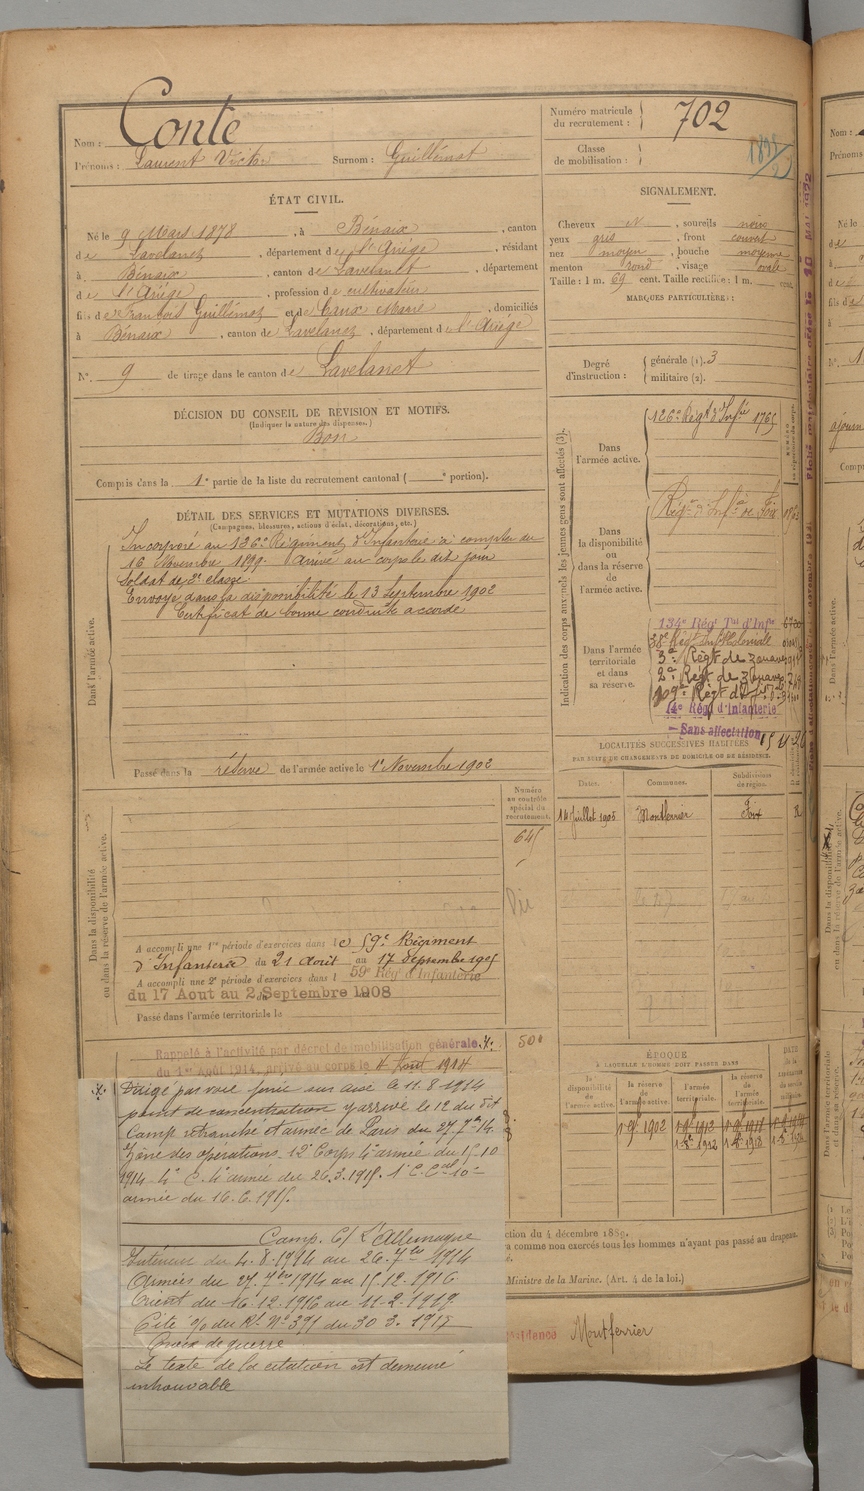 Nom : Conte
Prénoms : Laurent Victor Surnom : Guillémat
Numéro matricule du recrutement : 702
Classe de mobilisation :
ÉTAT CIVIL.
Né le 9 Mars 1878, à Bénaix, canton
de Lavelanet, département de l'Ariège, résidant
à Bénaix, canton de Lavelanet, département
de l'Ariège, profession de cultivateur
fils de François Guillémot et de Caux Marie, domiciliés
à Bénaix, canton de Lavelanet, département de l'Ariège
N° 9 de tirage dans le canton de Lavelanet
SIGNALEMENT.
Cheveux N, sourcils noirs
yeux gris, front couvert
nez moyen, bouche moyenne
menton rond, visage ovale
Taille : 1 m. 69 cent. Taille rectifiée : 1 m. cent.
MARQUES PARTICULIÈRES :
Degré d'instruction : générale (1). 3
militaire (2).
DÉCISION DU CONSEIL DE REVISION ET MOTIFS.
(Indiquer la nature des dispenses.)
Bon
Compris dans la 1e partie de la liste du recrutement cantonal ( e portion).
DÉTAIL DES SERVICES ET MUTATIONS DIVERSES.
(Campagnes, blessures, actions d'éclat, décorations, etc.)
Dans l'armée active.
Incorporé au 126e Régiment d'Infanterie à compter du
16 Novembre 1899. Arrivé au corps le dit jour
Soldat de 2e classe.
Envoyé dans la disponibilité le 13 Septembre 1902
Certificat de bonne conduite accordé
Passé dans la réserve de l'armée active le 1er Novembre 1902
Indication des corps auxquels les jeunes gens sont affectés (3).
Dans l'armée active.
126e Régt d'Infie 1765
Dans la disponibilité ou dans la réserve de l'armée active.
Régt d'Infie de Foix
Dans l'armée territoriale et dans sa réserve.
134e Régt Tal d'Infie
38e Régt Infie Coloniale
3e Régt de Zouaves
2e Régt de Zouaves
14e Régt d'Infanterie
Sans affectation
LOCALITÉS SUCCESSIVES HABITÉES
PAR SUITE DE CHANGEMENTS DE DOMICILE OU DE RÉSIDENCE.
Dates. Communes. Subdivisions de région.
14 Juillet 1905 Montferrier Foix R
Numéro au contrôle spécial du recrutement.
645
Dans la disponibilité ou dans la réserve de l'armée active.
A accompli une 1re période d'exercices dans le 59e Régiment
d'Infanterie du 21 Août au 17 Septembre 1905
A accompli une 2e période d'exercices dans l 59e Régt d'Infanterie
du 17 Aout au 2 Septembre 1908
Passé dans l'armée territoriale le
Rappelé à l'activité par décret de mobilisation générale
du 1er Août 1914, arrivé au corps le 4 Août 1914
500
ÉPOQUE
À LAQUELLE L'HOMME DOIT PASSER DANS
la disponibilité de l'armée active. la réserve de l'armée active. l'armée territoriale. la réserve de l'armée territoriale.
Dirigé par voie ferrée sur le 11.8.1914
point de concentration y arrivé le 12 du dit
Camp retranché et armée de Paris du 27.7bre 14
Zone des opérations. 12e Corps 4e armée du 15.10
1914. 4e C. 4e armée du 26.3.1915. 1e C. Cal 10e
armée du 16.6.1915.
Camp. C/ L'Allemagne
Intérieur du 4.8.1914 au 26.7bre 1914
Armées du 27.7bre 1914 au 15.12.1916
Orient du 16.12.1916 au 11.2.1919
Cité % du Rt N° 391 du 30 3.1917
Croix de guerre
Le texte de la citation est demeuré
introuvable
ction du 4 décembre 1889.
comme non exercés tous les hommes n'ayant pas passé au drapeau.
Ministre de la Marine. (Art. 4 de la loi.)
Résidence Montferrier